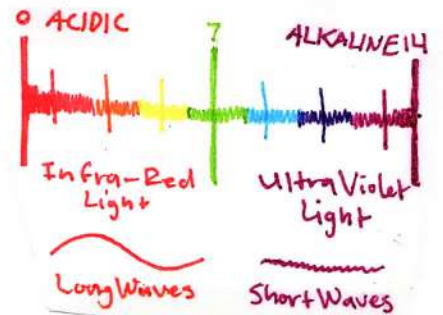 0 ACIDIC 7 ALKALINE 14
Infra-Red UltraViolet
Light Light
Long Waves Short Waves